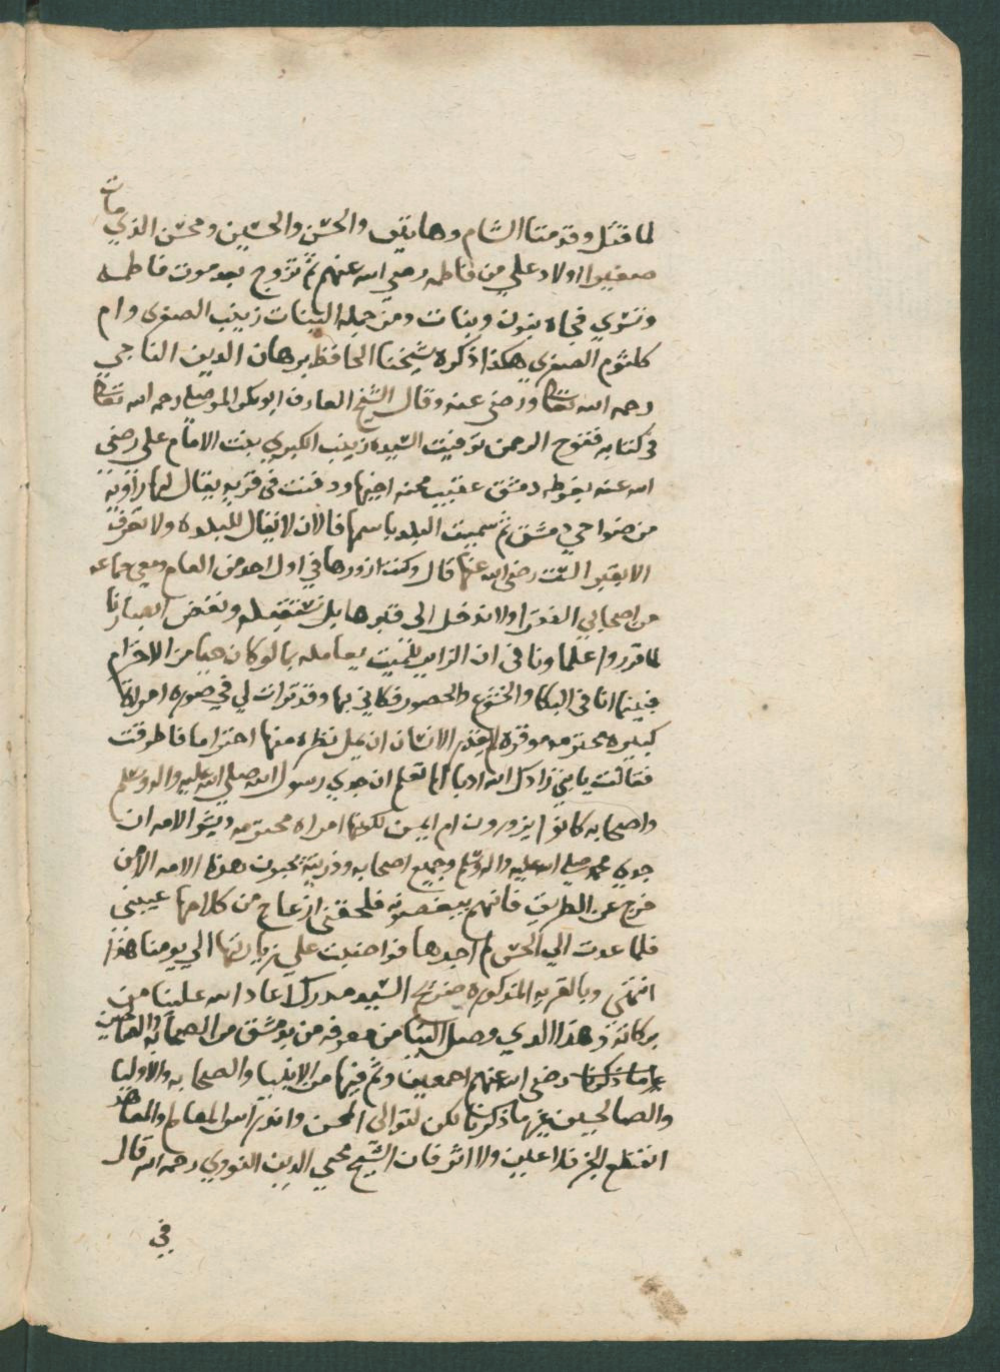 لما قتل وقدمتا الشام وهاتين والحسن والحسين ومحسن الذي مات
صغيرا اولاد علي من فاطمه رضي الله عنهم ثم تزوج بعد موت فاطمه
وتسري فجاه بنون وبنات ومن جمله البنات زينب الصغرى وام
كلثوم الصغرى هكذا ذكره شيخنا الحافظ برهان الدين الناجي
رحمه الله تعالى ورضي عنه وقال الشيخ العارف ابو بكر الموصلي رحمه الله تعالى
في كتابه فتوح الرحمن توفيت السيده زينب الكبرى بنت الامام علي رضي
الله عنه بغوطه دمشق عقيب محنه اخيها ودفنت في قريه يقال لها راويه
من ضواحي دمشق ثم سميت البلد باسمها فالان لا يقال للبلده ولا تعرف
الا بقبر الست رضي الله عنها قال وكنت ازورها في اول احد من العام ومعي جماعه
من اصحابي الفقرا ولا ندخل الى قبرها بل نستقبله ونغض ابصارنا
لما قرروا علماونا في ان الزاير للميت يعامله بما لو كان حيا من الاحترام
فبينما انا في البكا والخشوع والحضور فكاني بها وقد تراات لي في صوره امراة
كبيره محترمه موقره لا يقدر الانسان ان يمل نظره منها احتراما فاطرقت
فقالت يا بني زادك الله ادبا الم تعلم ان جدي رسول الله صلى الله عليه واله وسلم
واصحابه كانوا يزورون ام ايمن لكونها امراه محترمه وبشر الامه ان
جدي محمد صلى الله عليه واله وسلم وجميع اصحابه وذريته يحبون هذه الامه الا من
خرج عن الطريق فانهم يبغضونه فلحقني انزعاج من كلامها غيبني
فلما عدت الي الحس لم اجدها فواضبت علي زيارتها الي يومنا هذا
انتهى وبالقريه المذكوره ضريح السيد مدرك اعاد الله علينا من
بركاته وهذا الذي وصل الينا من معرفه من بدمشق من الصحابه والصالحين
ما ذكرنا رضي الله عنهم اجمعين وثم فيها من الانبيا والصحابه والاوليا
والصالحين غير ما ذكرنا لكن لتوالى المحن واندراس المعالم والمعاهد
انقطع الخبر فلا عين ولا اثر فان الشيخ محيي الدين النووي رحمه الله قال
في